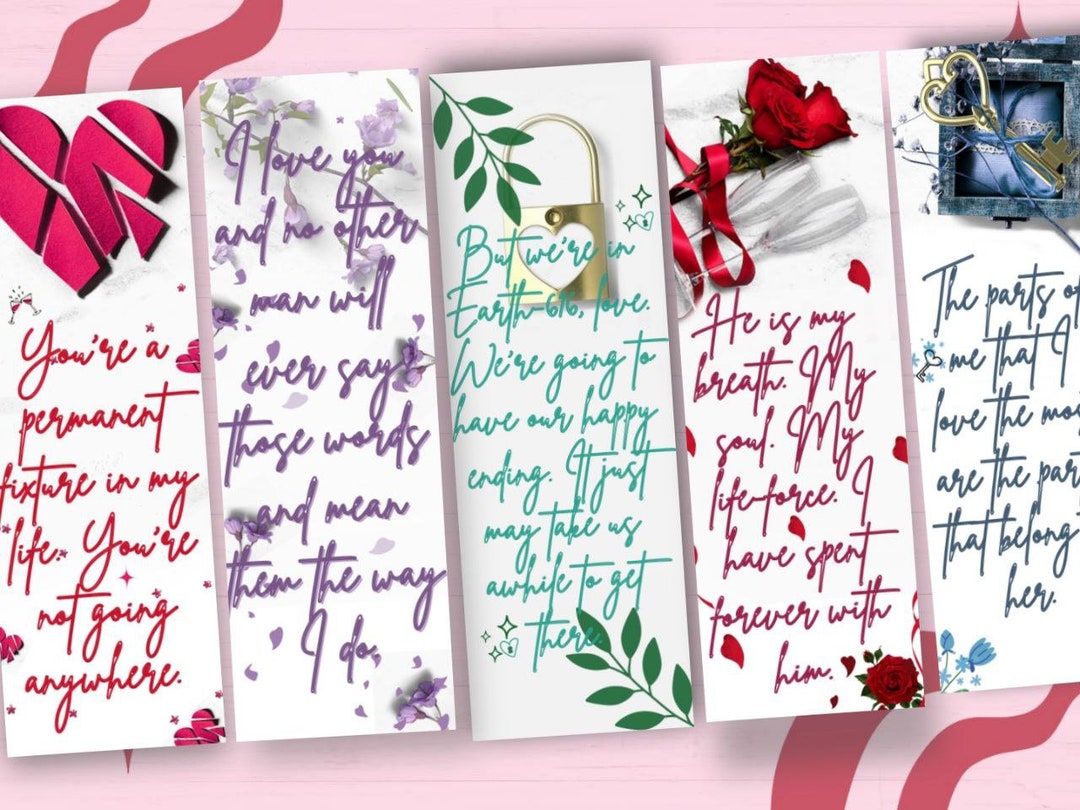 You're a
permanent
fixture in my
life. You're
not going
anywhere.
I love you
and no other
man will
ever say
those words
and mean
them the way
I do.
But we're in
Earth-616, love.
We're going to
have our happy
ending. It just
may take us
awhile to get
there.
He is my
breath. My
soul. My
life-force. I
have spent
forever with
him.
The parts of
me that I
love the most
are the parts
that belong to
her.